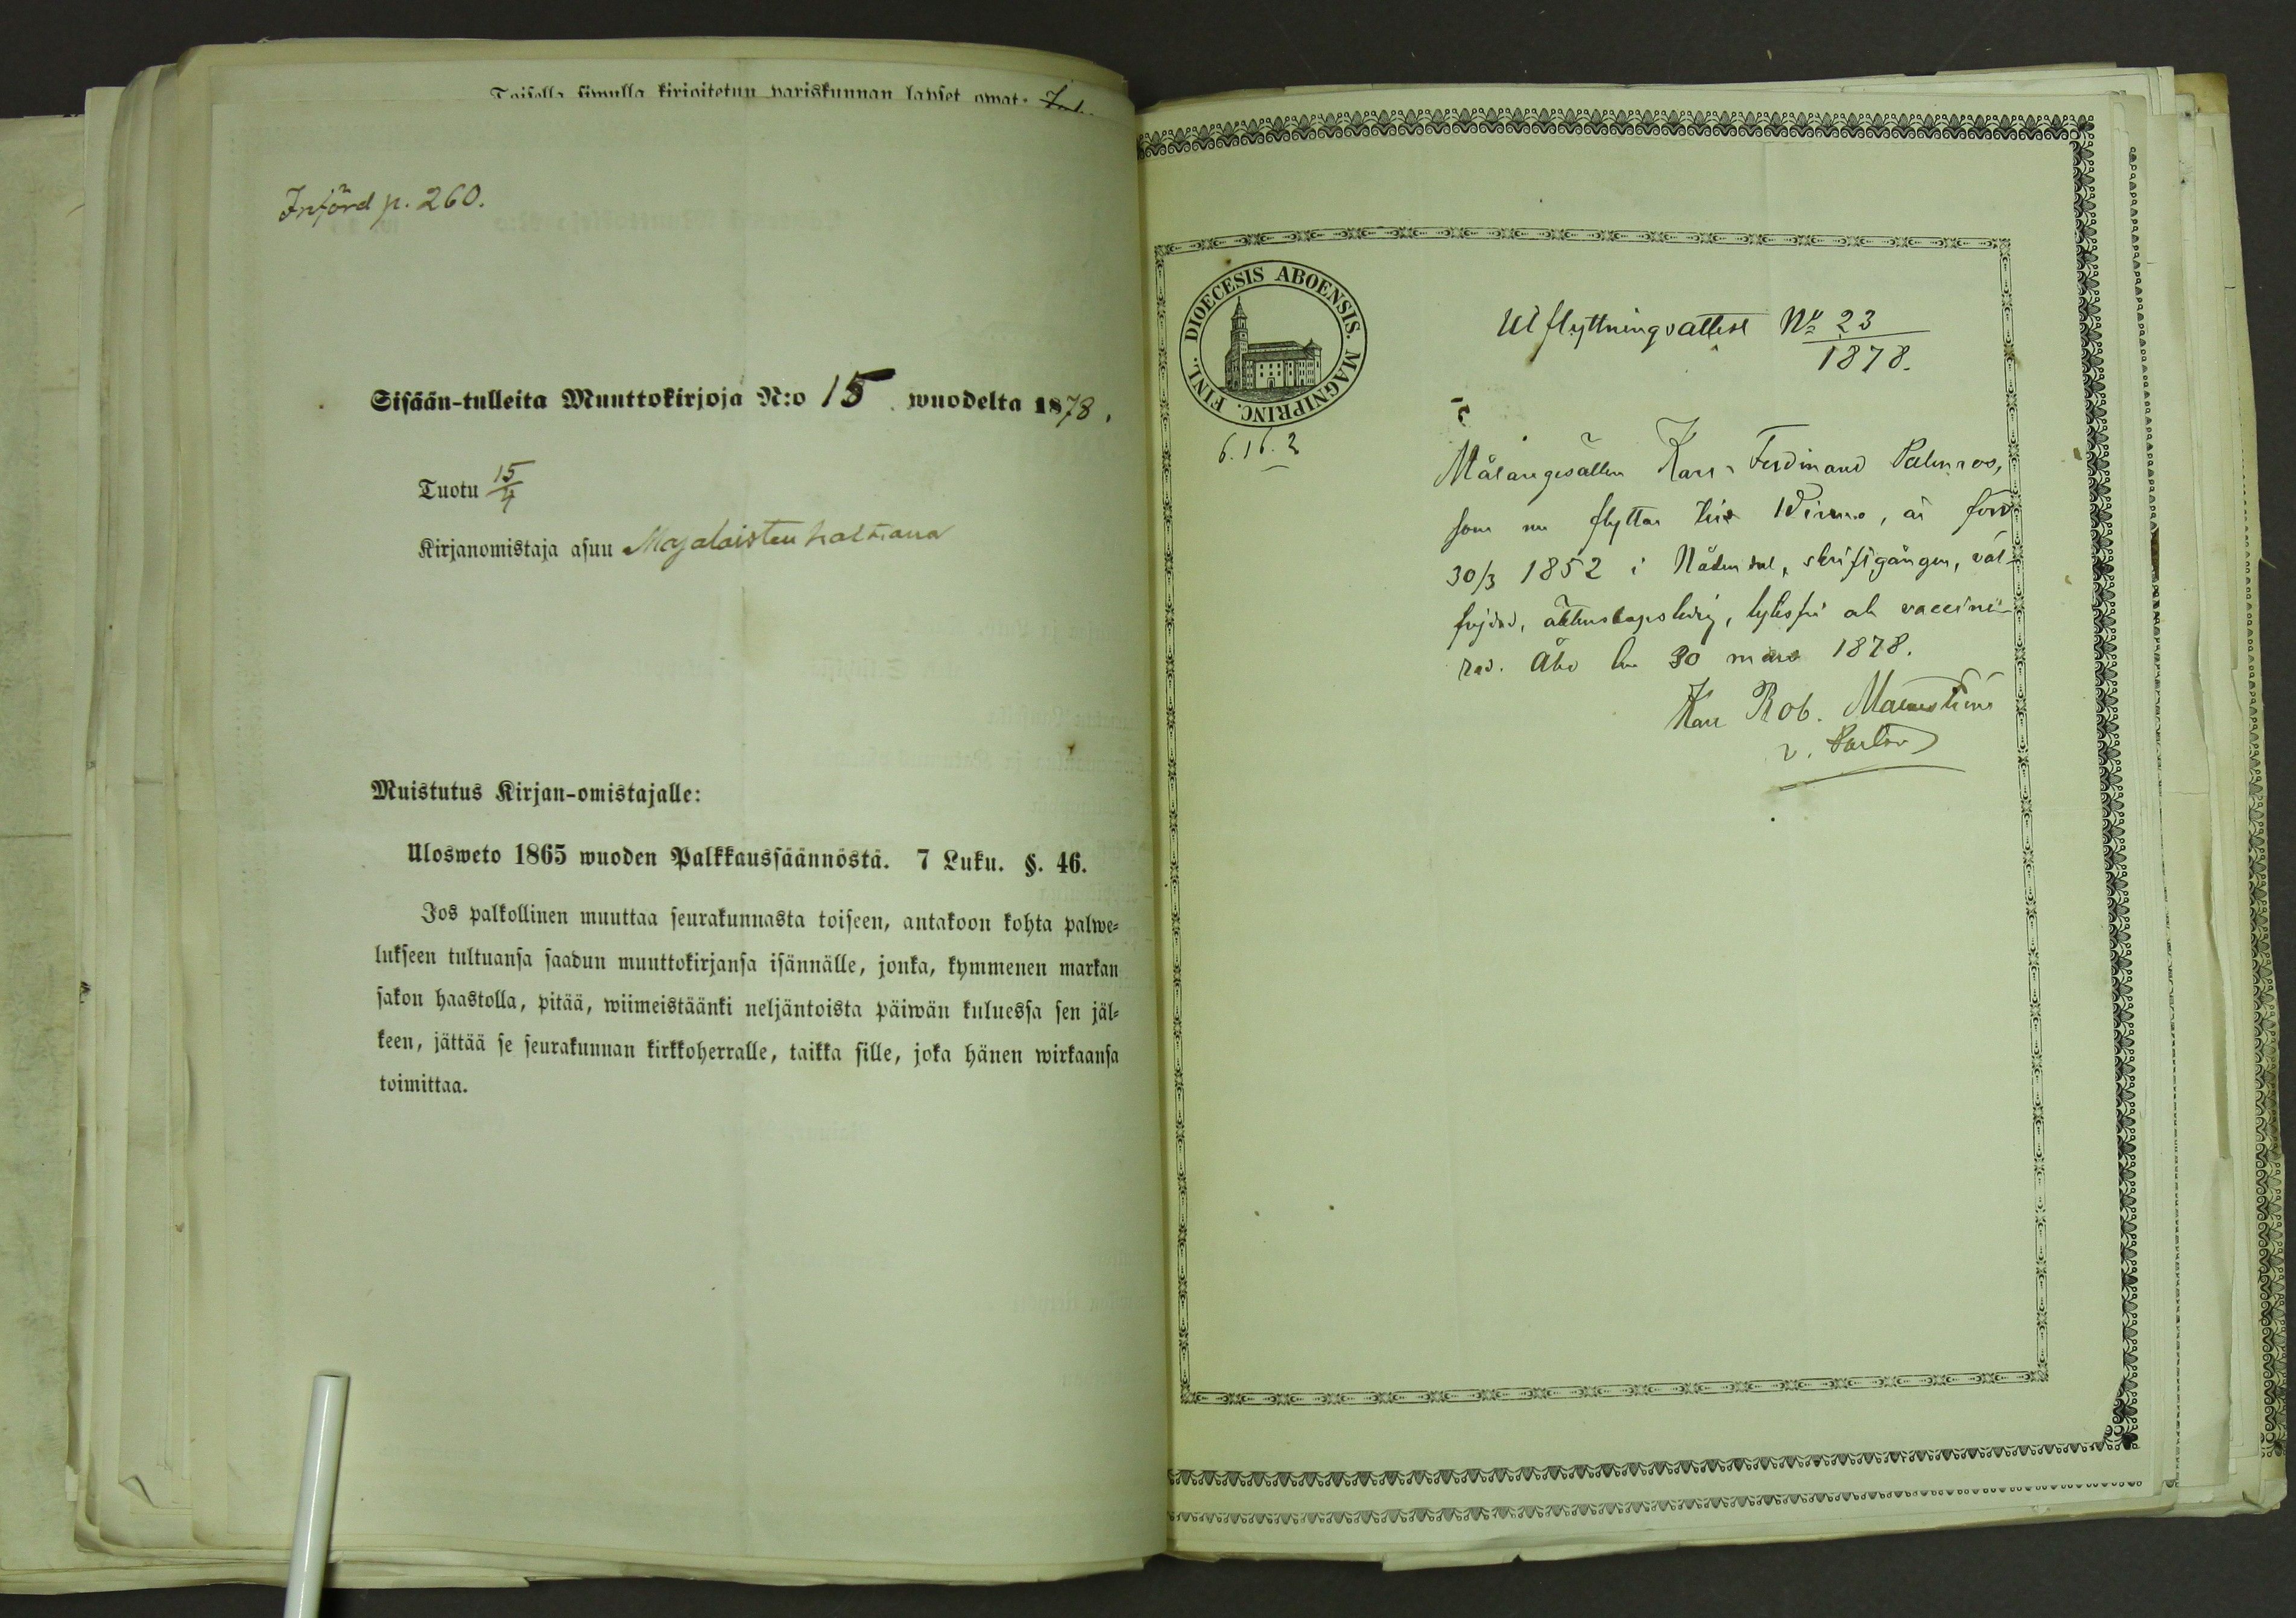 Toisella siwulla kirjoitetun pariskunnan lapset owat:
Införd p. 260.
Sisään-tulleita Muuttokirjoja N:o 15 wuodelta 1878.
Tuotu 15/4
Kirjanomistaja asuu Majalaisten
Muistutus Kirjan-omistajalle:
Ulosweto 1865 wuoden Palkkaussäännöstä. 7 Luku. §. 46.
Jos palkollinen muuttaa seurakunnasta toiseen, antakoon kohta palwe-
lukseen tultuansa saadun muuttokirjansa isännälle, jonka, kymmenen markan
sakon haastolla, pitää, wiimeistäänki neljäntoista päiwän kuluessa sen jäl-
keen, jättää se seurakunnan kirkkoherralle, taikka sille, joka hänen wirkaansa
toimittaa.
FINL. DIOECESIS ABOENSIS. MAGNIPRINC.
6.16.2
Utflyttningsattest No 23
1878.
Målaregesällen Karl Ferdinand Palmroos,
som nu flyttar till Wirmo, är född
30/3 1852 i Nådendal, skriftgången, väl-
frejdad, äktenskapsledig, lytesfri och vaccine-
rad. Åbo den 30 mars 1878.
Karl Rob. Malmström
v. Pastor